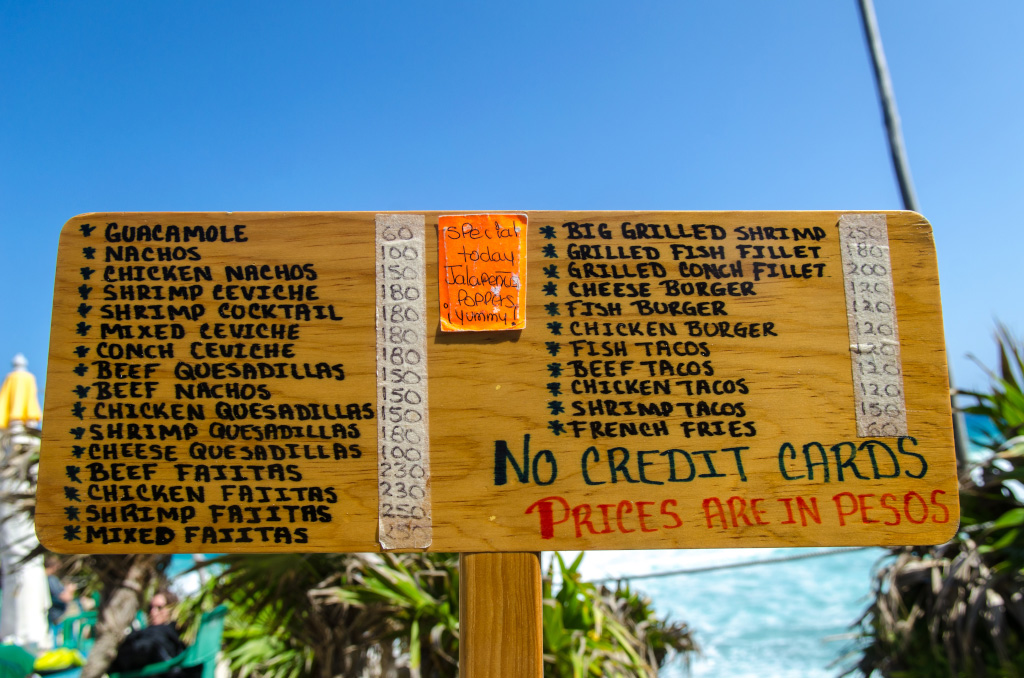 * GUACAMOLE 60
* NACHOS 100
* CHICKEN NACHOS 150
* SHRIMP CEVICHE 180
* SHRIMP COCKTAIL 180
* MIXED CEVICHE 180
* CONCH CEVICHE 180
* BEEF QUESADILLAS 150
* BEEF NACHOS 150
* CHICKEN QUESADILLAS 150
* SHRIMP QUESADILLAS 180
* CHEESE QUESADILLAS 100
* BEEF FAJITAS 230
* CHICKEN FAJITAS 230
* SHRIMP FAJITAS 250
* MIXED FAJITAS
special
today
Jalapeño
Poppers
¡yummy!
* BIG GRILLED SHRIMP 250
* GRILLED FISH FILLET 180
* GRILLED CONCH FILLET 200
* CHEESE BURGER 120
* FISH BURGER 120
* CHICKEN BURGER 120
* FISH TACOS 120
* BEEF TACOS 120
* CHICKEN TACOS 120
* SHRIMP TACOS 150
* FRENCH FRIES 60
NO CREDIT CARDS
PRICES ARE IN PESOS